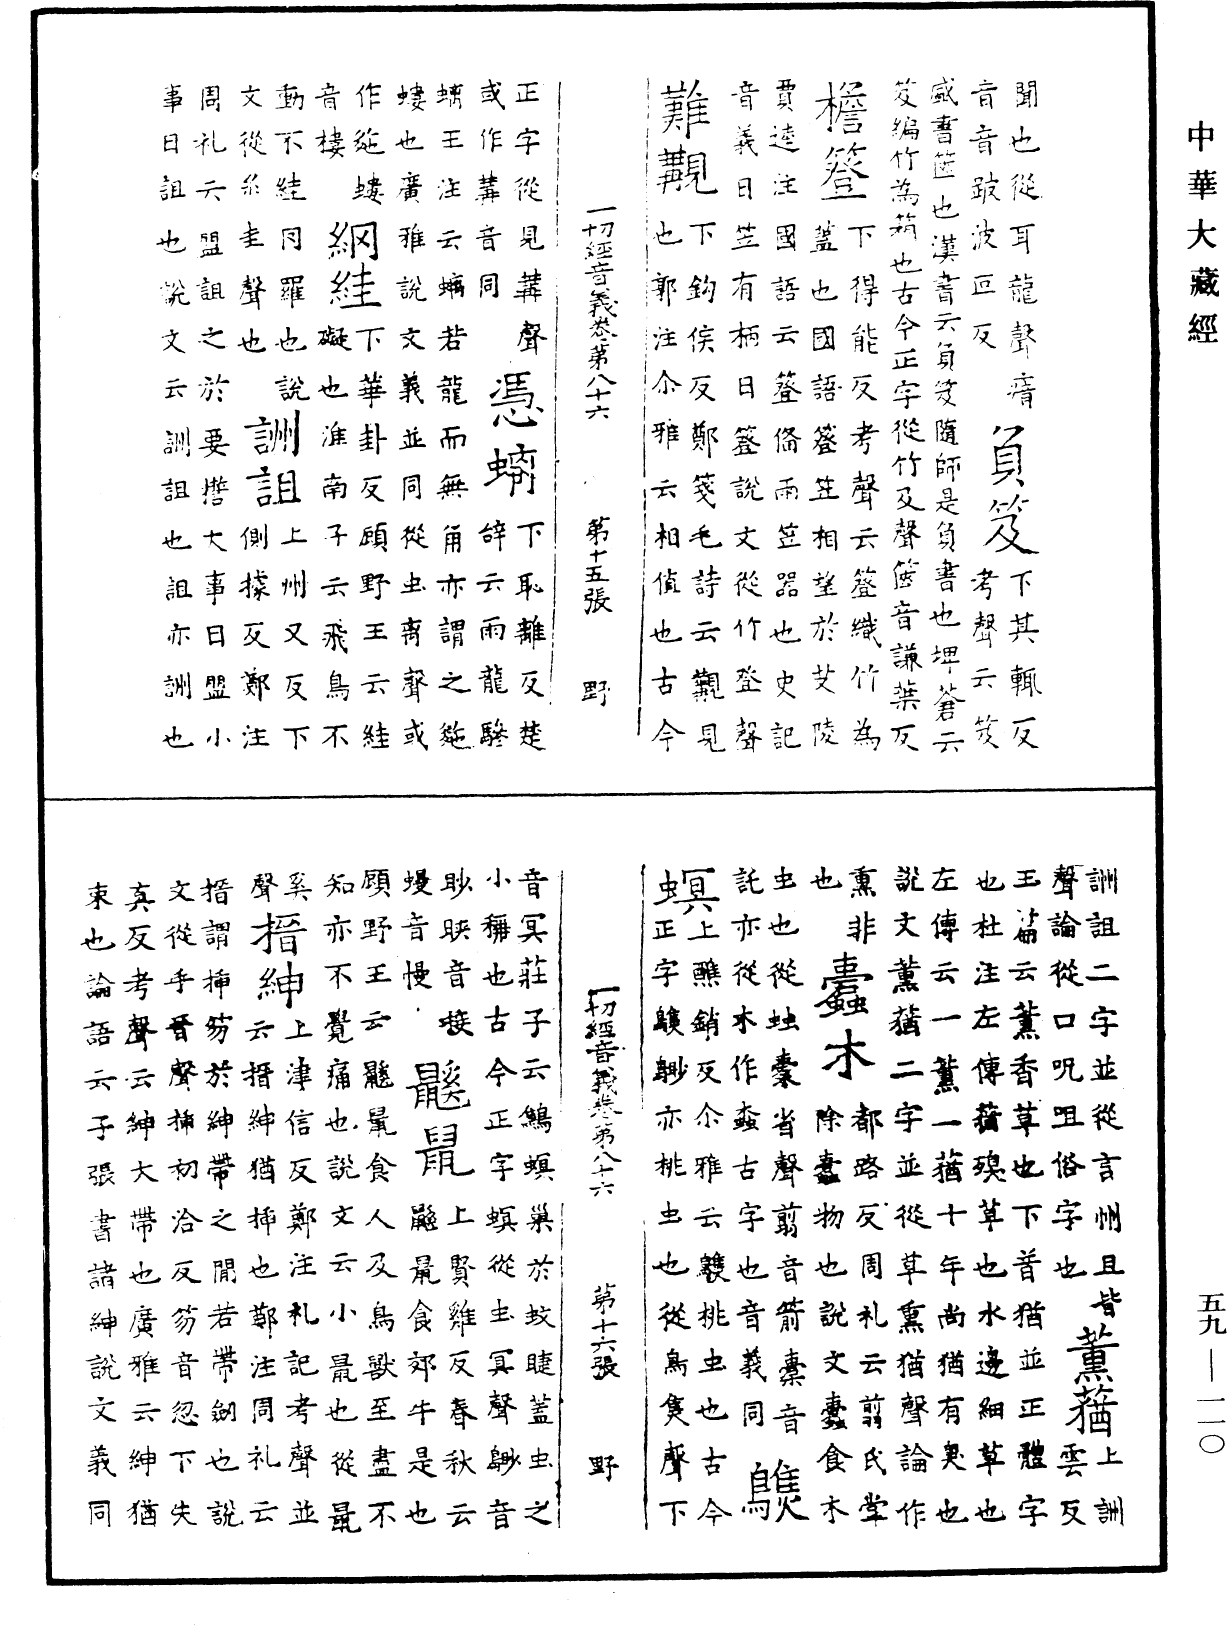 中華大藏經
聞也從耳龍聲㾕 負笈 下其輒反
音音跛波叵反 考聲云笈
盛書篋也漢書云負笈隨師是負書也埤蒼云
笈編竹為箱也古今正字從竹及聲篋音謙葉反
檐簦 下得能反考聲云簦織竹為
蓋也國語簦笠相望於艾陵
賈逵注國語云簦俻雨笠器也史記
音義曰笠有柄曰簦說文從竹登聲
難覯 下鈎侯反鄭箋毛詩云覯見
也郭注尒雅云相值也古今
一切經音義卷第八十六 第十五張 野
正字從見冓聲 憑螭 下恥離反楚
或作冓音同 辭云雨龍驂
螭王注云螭若龍而無角亦謂之虵
螻也廣雅說文義並同從虫离聲或
作虵螻 網絓 下華卦反顧野王云絓
音樓 礙也淮南子云飛鳥不
動不絓罔羅也說 詶詛 上州又反下
文從糸圭聲也 側據反鄭注
周礼云盟詛之於要㦸大事曰盟小
事曰詛也說文云詶詛也詛亦詶也
詶詛二字並從言州且皆 薰蕕 上詶
聲論從口呪咀俗字也 雲反
王篇云薰香草也下音猶並正體字
也杜注左傳蕕㱙草也水邊細草也
左傳云一薰一蕕十年尚猶有臭也
說文薰蕕二字並從草熏猶聲論作
熏非 蠹木 都路反周礼云剪氏掌
也 除蠹物也說文蠹食木
虫也從䖵橐省聲剪音箭橐音
託亦從木作螙古字也音義同 鷦
螟 上醮銷反尒雅云鷦桃虫也古今
正字鷦䳟亦桃虫也從鳥焦聲下
一切經音義卷第八十六 第十六張 野
音冥莊子云鷦螟巢於蚊睫蓋虫之
小稱也古今正字螟從虫冥聲䳟音
眇䀹音接 鼷鼠 上賢雞反春秋云
蟃音慢 鼷鼠食郊牛是也
顧野王云鼷鼠食人及鳥獸至盡不
知亦不覺痛也說文云小鼠也從鼠
奚 搢紳 上津信反鄭注礼記考聲並
聲 云搢紳猶揷也鄭注周礼云
搢謂揷笏於紳帶之閒若帶劒也說
文從手晉聲揷初洽反笏音忽下失
真反考聲云紳大帶也廣雅云紳猶
束也論語云子張書諸紳說文義同
五九—一一〇